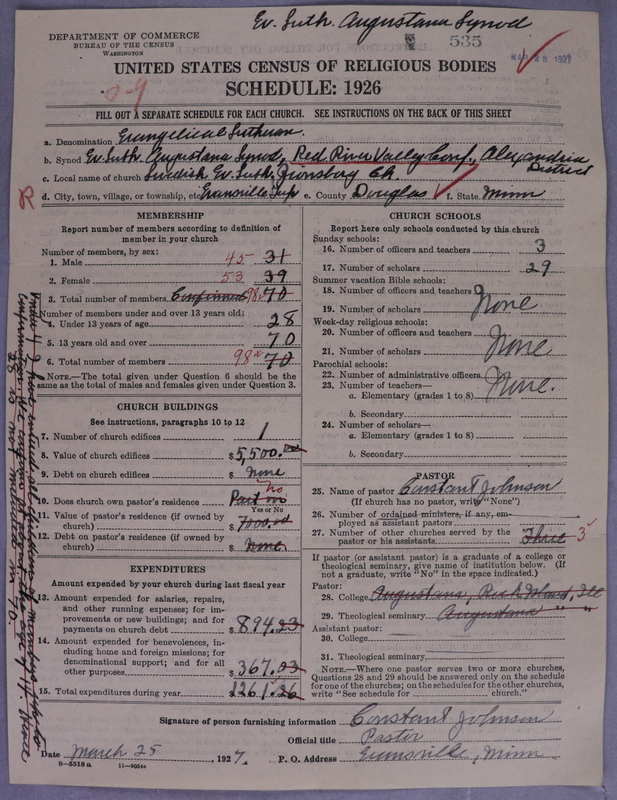 Ev. Luth. Augustana Synod
DEPARTMENT OF COMMERCE
BUREAU OF THE CENSUS
WASHINGTON
535
MAR 28 1927
UNITED STATES CENSUS OF RELIGIOUS BODIES
SCHEDULE: 1926
0-9
FILL OUT A SEPARATE SCHEDULE FOR EACH CHURCH. SEE INSTRUCTIONS ON THE BACK OF THIS SHEET
a. Denomination Evangelical Lutheran
b. Synod Ev. Luth. Augustana Synod, Red River Valley Conf., Alexandria District
c. Local name of church Swedish Ev. Luth. Fionsborg Ch.
R
d. City, town, village, or township, etc. Evansville Twp e. County Douglas f. State Minn
MEMBERSHIP
Report number of members according to definition of member in your church
Number of members, by sex:
1. Male 45 31
2. Female 53 39
3. Total number of members Confirmed 98 70
Number of members under and over 13 years old:
4. Under 13 years of age 28
5. 13 years old and over 70
6. Total number of members 98 70
NOTE.—The total given under Question 6 should be the same as the total of males and females given under Question 3.
CHURCH BUILDINGS
See instructions, paragraphs 10 to 12
7. Number of church edifices 1
8. Value of church edifices $5,500.00
9. Debt on church edifices $ None
10. Does church own pastor's residence No Part in
Yes or No
11. Value of pastor's residence (if owned by church) $7000.00
12. Debt on pastor's residence (if owned by church) $ None
EXPENDITURES
Amount expended by your church during last fiscal year
13. Amount expended for salaries, repairs, and other running expenses; for improvements or new building; and for payments on church debt $894.23
14. Amount expended for benevolences, including home and foreign missions; for denominational support; and for all other purposes $367.03
15. Total expenditures during year 1261.26
CHURCH SCHOOLS
Report here only schools conducted by this church
Sunday schools:
16. Number of officers and teachers 3
17. Number of scholars 29
Summer vacation Bible schools:
18. Number of officers and teachers
19. Number of scholars None
Week-day religious schools:
20. Number of officers and teachers
21. Number of scholars None
Parochial schools:
22. Number of administrative officers
23. Number of teachers— None.
a. Elementary (grades 1 to 8)
b. Secondary
24. Number of scholars—
a. Elementary (grades 1 to 8)
b. Secondary
PASTOR
25. Name of pastor Constant Johnson
(If church has no pastor, write "None")
26. Number of ordained ministers, if any, employed as assistant pastors
27. Number of other churches served by the pastor or his assistants Three 3
If pastor (or assistant pastor) is a graduate of a college or theological seminary, give name of institution below. (If not a graduate, write "No" in the space indicated.)
Pastor:
28. College Augustana, Rock Island, Ill
29. Theological seminary Augustana " "
Assistant pastor:
30. College
31. Theological seminary
NOTE.—Where one pastor serves two or more churches, Questions 28 and 29 should be answered only on the schedule for one of the churches; on the schedules for the other churches, write "See schedule for church."
Signature of person furnishing information Constant Johnson
Official title Pastor
Date March 25, 1927. P. O. Address Evansville, Minn
8-5518a 11-9054a